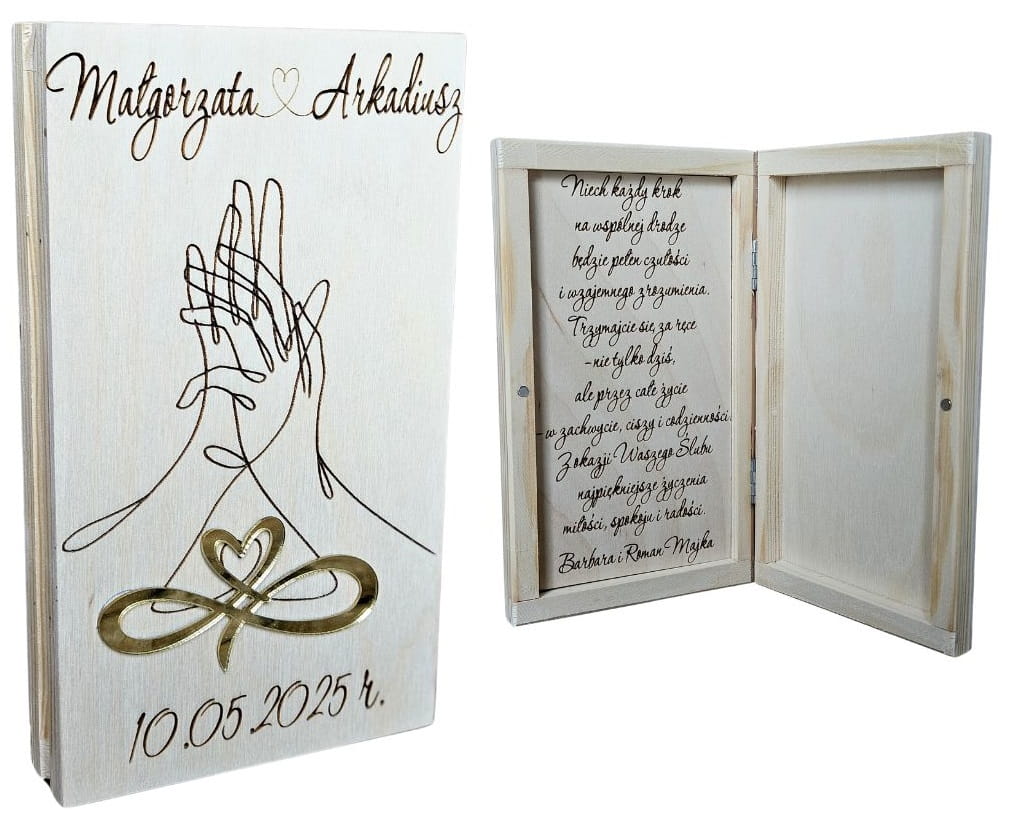 Małgorzata Arkadiusz
10.05.2025 r.
Niech każdy krok
na wspólnej drodze
będzie pełen czułości
i wzajemnego zrozumienia.
Trzymajcie się za ręce
-nie tylko dziś,
ale przez całe życie
-w zachwycie, ciszy i codzienności.
Z okazji Waszego Ślubu
najpiękniejsze życzenia
miłości, spokoju i radości.
Barbara i Roman Majka